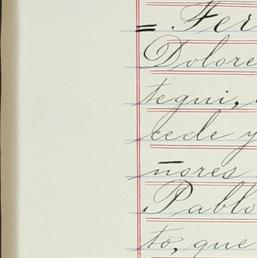 = Fer
Dolore
tegui,
cede y
ñores
Pablo
to, que